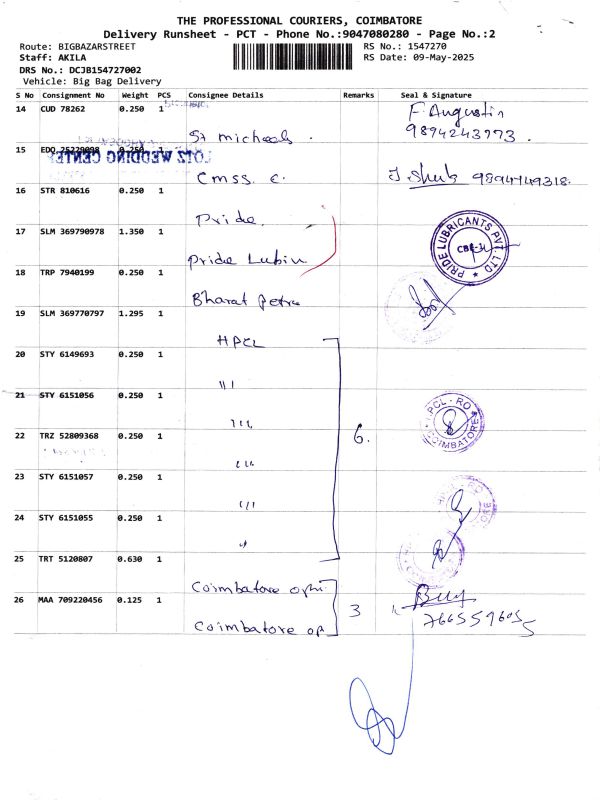 THE PROFESSIONAL COURIERS, COIMBATORE
Delivery Runsheet - PCT - Phone No.:9047080280 - Page No.:2
Route: BIGBAZARSTREET RS No.: 1547270
Staff: AKILA RS Date: 09-May-2025
DRS No.: DCJB154727002
Vehicle: Big Bag Delivery
S No Consignment No Weight PCS Consignee Details Remarks Seal & Signature
14 CUD 78262 0.250 1 F. Augustin
St micheals. 9894243973.
15 EDO 25229098 0.250 1
LOTZ WEDDING CENTER
Cmss. c. 9894749318.
16 STR 810616 0.250 1
Pride.
17 SLM 369790978 1.350 1 PRIDE LUBRICANTS PVT. LTD
Pride Lubin CBE-31
18 TRP 7940199 0.250 1
Bharat Petro
19 SLM 369770797 1.295 1
HPCL
20 STY 6149693 0.250 1
111
21 STY 6151056 0.250 1 HPCL - RO
111 COIMBATORE
22 TRZ 52809368 0.250 1 6.
111
23 STY 6151057 0.250 1
111
24 STY 6151055 0.250 1
"
25 TRT 5120807 0.630 1
Coimbatore opti
26 MAA 709220456 0.125 1 3
Coimbatore op 7665596055